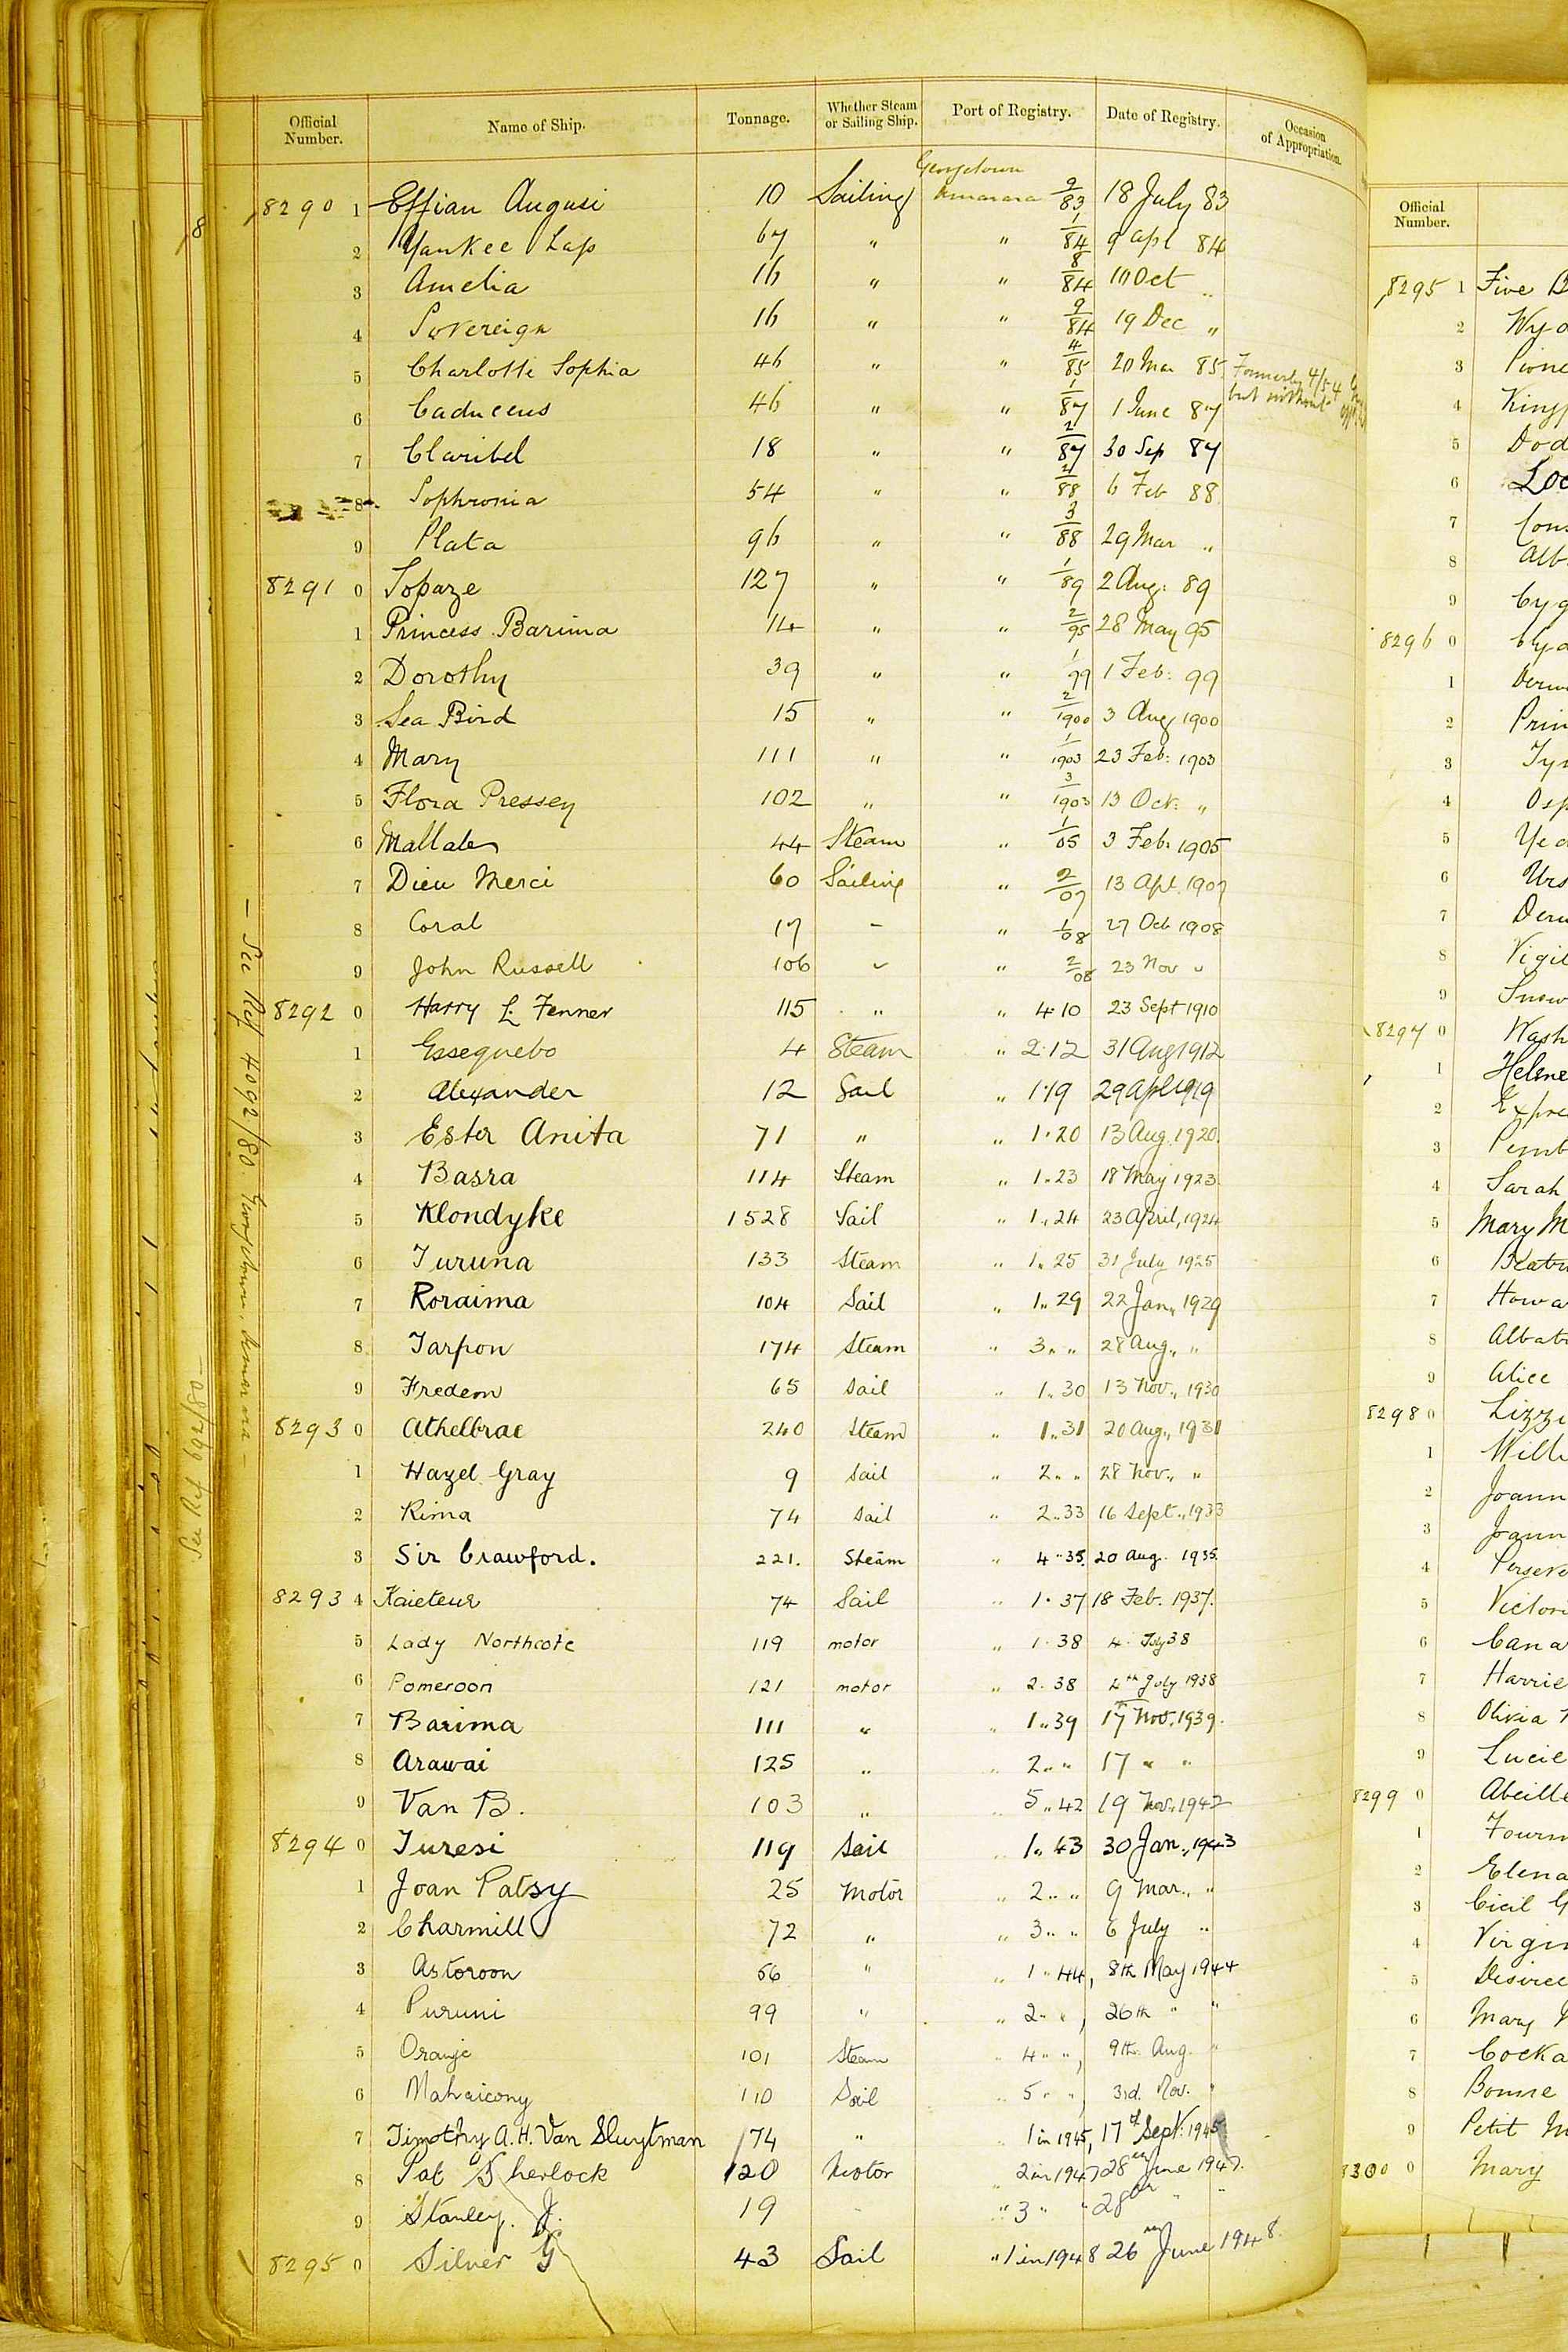 Official Number. Name of Ship. Tonnage. Whether Steam or Sailing Ship. Port of Registry. Date of Registry. Occasion of Appropriation.
Georgetown
8290 1 Effian Augusi 10 Sailing Demarara 9/83 18 July 83
2 Yankee Lass 67 " " 1/84 9 Apl 84
3 Amelia 16 " " 8/84 10 Oct "
4 Sovereign 16 " " 9/84 19 Dec "
5 Charlotte Sophia 46 " " 4/85 20 Mar 85 Formerly 4/54
6 Caduceus 46 " " 1/87 1 June 87 but without
7 Claribel 18 " " 2/87 30 Sep 87
8 Sophronia 54 " " /88 6 Feb 88
9 Plata 96 " " 3/88 29 Mar "
8291 0 Topaze 127 " " 1/89 2 Aug: 89
1 Princess Barima 14 " " 2/95 28 May 95
2 Dorothy 39 " " 1/99 1 Feb: 99
3 Sea Bird 15 " " 2/1900 3 Aug 1900
4 Mary 111 " " 1/1903 23 Feb: 1903
5 Flora Pressey 102 " " 3/1903 13 Oct: "
6 44 Steam " 1/05 3 Feb: 1905
7 Dieu Merci 60 Sailing " 2/07 13 Apl. 1907
8 Coral 17 - " 1/08 27 Oct 1908
9 John Russell 106 " " 2/08 23 Nov "
8292 0 Harry L. Fenner 115 " " 4.10 23 Sept 1910
1 Essequebo 4 Steam " 2.12 31 Aug 1912
2 Alexander 12 Sail " 1.19 29 Apl 1919
3 Ester Anita 71 " " 1.20 13 Aug. 1920.
4 Basra 114 Steam " 1..23 18 May 1923
5 Klondyke 1528 Sail " 1..24 23 April, 1924
6 Turuna 133 Steam " 1..25 31 July 1925
7 Roraima 104 Sail " 1..29 22 Jan., 1929
8 Tarpon 174 Steam " 3.. " 28 Aug., "
9 Fredem 65 Sail " 1..30 13 Nov., 1930
8293 0 Athelbrae 240 Steam " 1..31 20 Aug., 1931
1 Hazel Gray 9 Sail " 2.. " 28 Nov., "
2 Rima 74 Sail " 2..33 16 Sept., 1933
3 Sir Crawford. 221. Steam " 4..35. 20 Aug. 1935.
8293 4 Kaieteur 74 Sail " 1.37 18 Feb. 1937.
5 Lady Northcote 119 motor " 1.38 4 July 38
6 Pomeroon 121 motor " 2.38 4th July 1938
7 Barima 111 " " 1..39 17th Nov. 1939.
8 Arawai 125 " " 2.. " 17 " "
9 Van B. 103 " " 5..42 19 Nov. 1942
8294 0 Turesi 119 Sail " 1..43 30 Jan., 1943
1 Joan Patsy 25 Motor " 2.. " 9 Mar., "
2 Charmill 72 " " 3.. " 6 July "
3 Astoroon 56 " " 1..44, 8th May 1944
4 Puruni 99 " " 2.. ", 26th " "
5 Oranje 101 Steam " 4.. ", 9th Aug. "
6 Mahaicony 110 Sail " 5.. ", 3rd. Nov. "
7 Timothy A.H. Van Sluytman 174 " " 1 in 1945, 17th Sept. 1945
8 Pat Sherlock 120 Motor " 2 in 1947 28th June 1947.
9 Stanley. J. 19 " " 3 " " 28th " "
8295 0 Silver G 43 Sail " 1 in 1948 26th June 1948.
- See Ref 4092/80. Georgetown, Demarara -
See Ref 692/80 -
8
Official Number.
8295 1 Five
2
3
4
5
6
7
8
9
8296 0
1
2
3
4
5
6
7
8
9
8297 0
1 Helene
2
3
4 Sarah
5 Mary
6
7
8
9 Alice
8298 0
1
2
3
4
5
6
7
8 Olivia
9
8299 0
1
2 Elena
3
4
5
6 Mary
7
8
9 Petit
8300 0 Mary